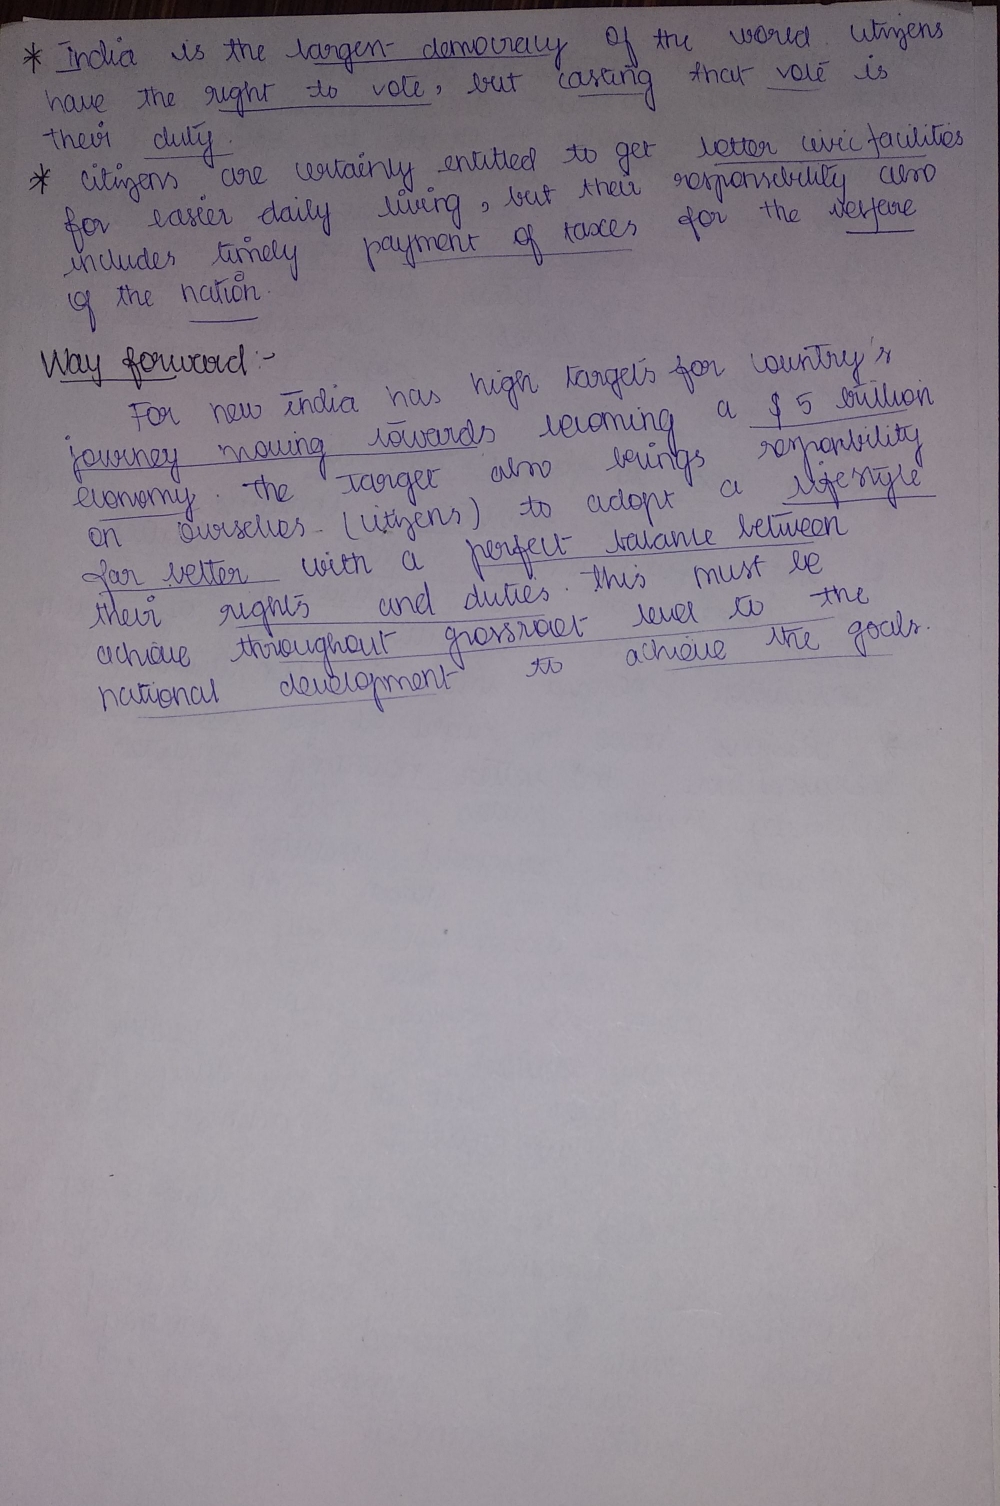 * India is the largest democracy of the world. citizens
have the right to vote, but casting that vote is
their duty.
* citizens are certainly entitled to get better civic facilities
for easier daily living, but their responsibility also
includes timely payment of taxes for the welfare
of the nation.
Way forward :-
For new india has high targets for country's
journey moving towards becoming a $ 5 trillion
economy. the target also brings responbility
on ourselves (citizens) to adopt a lifestyle
far better with a perfect balance between
their rights and duties. this must be
achieve throughout grossroot level to the
national development to achieve the goals.